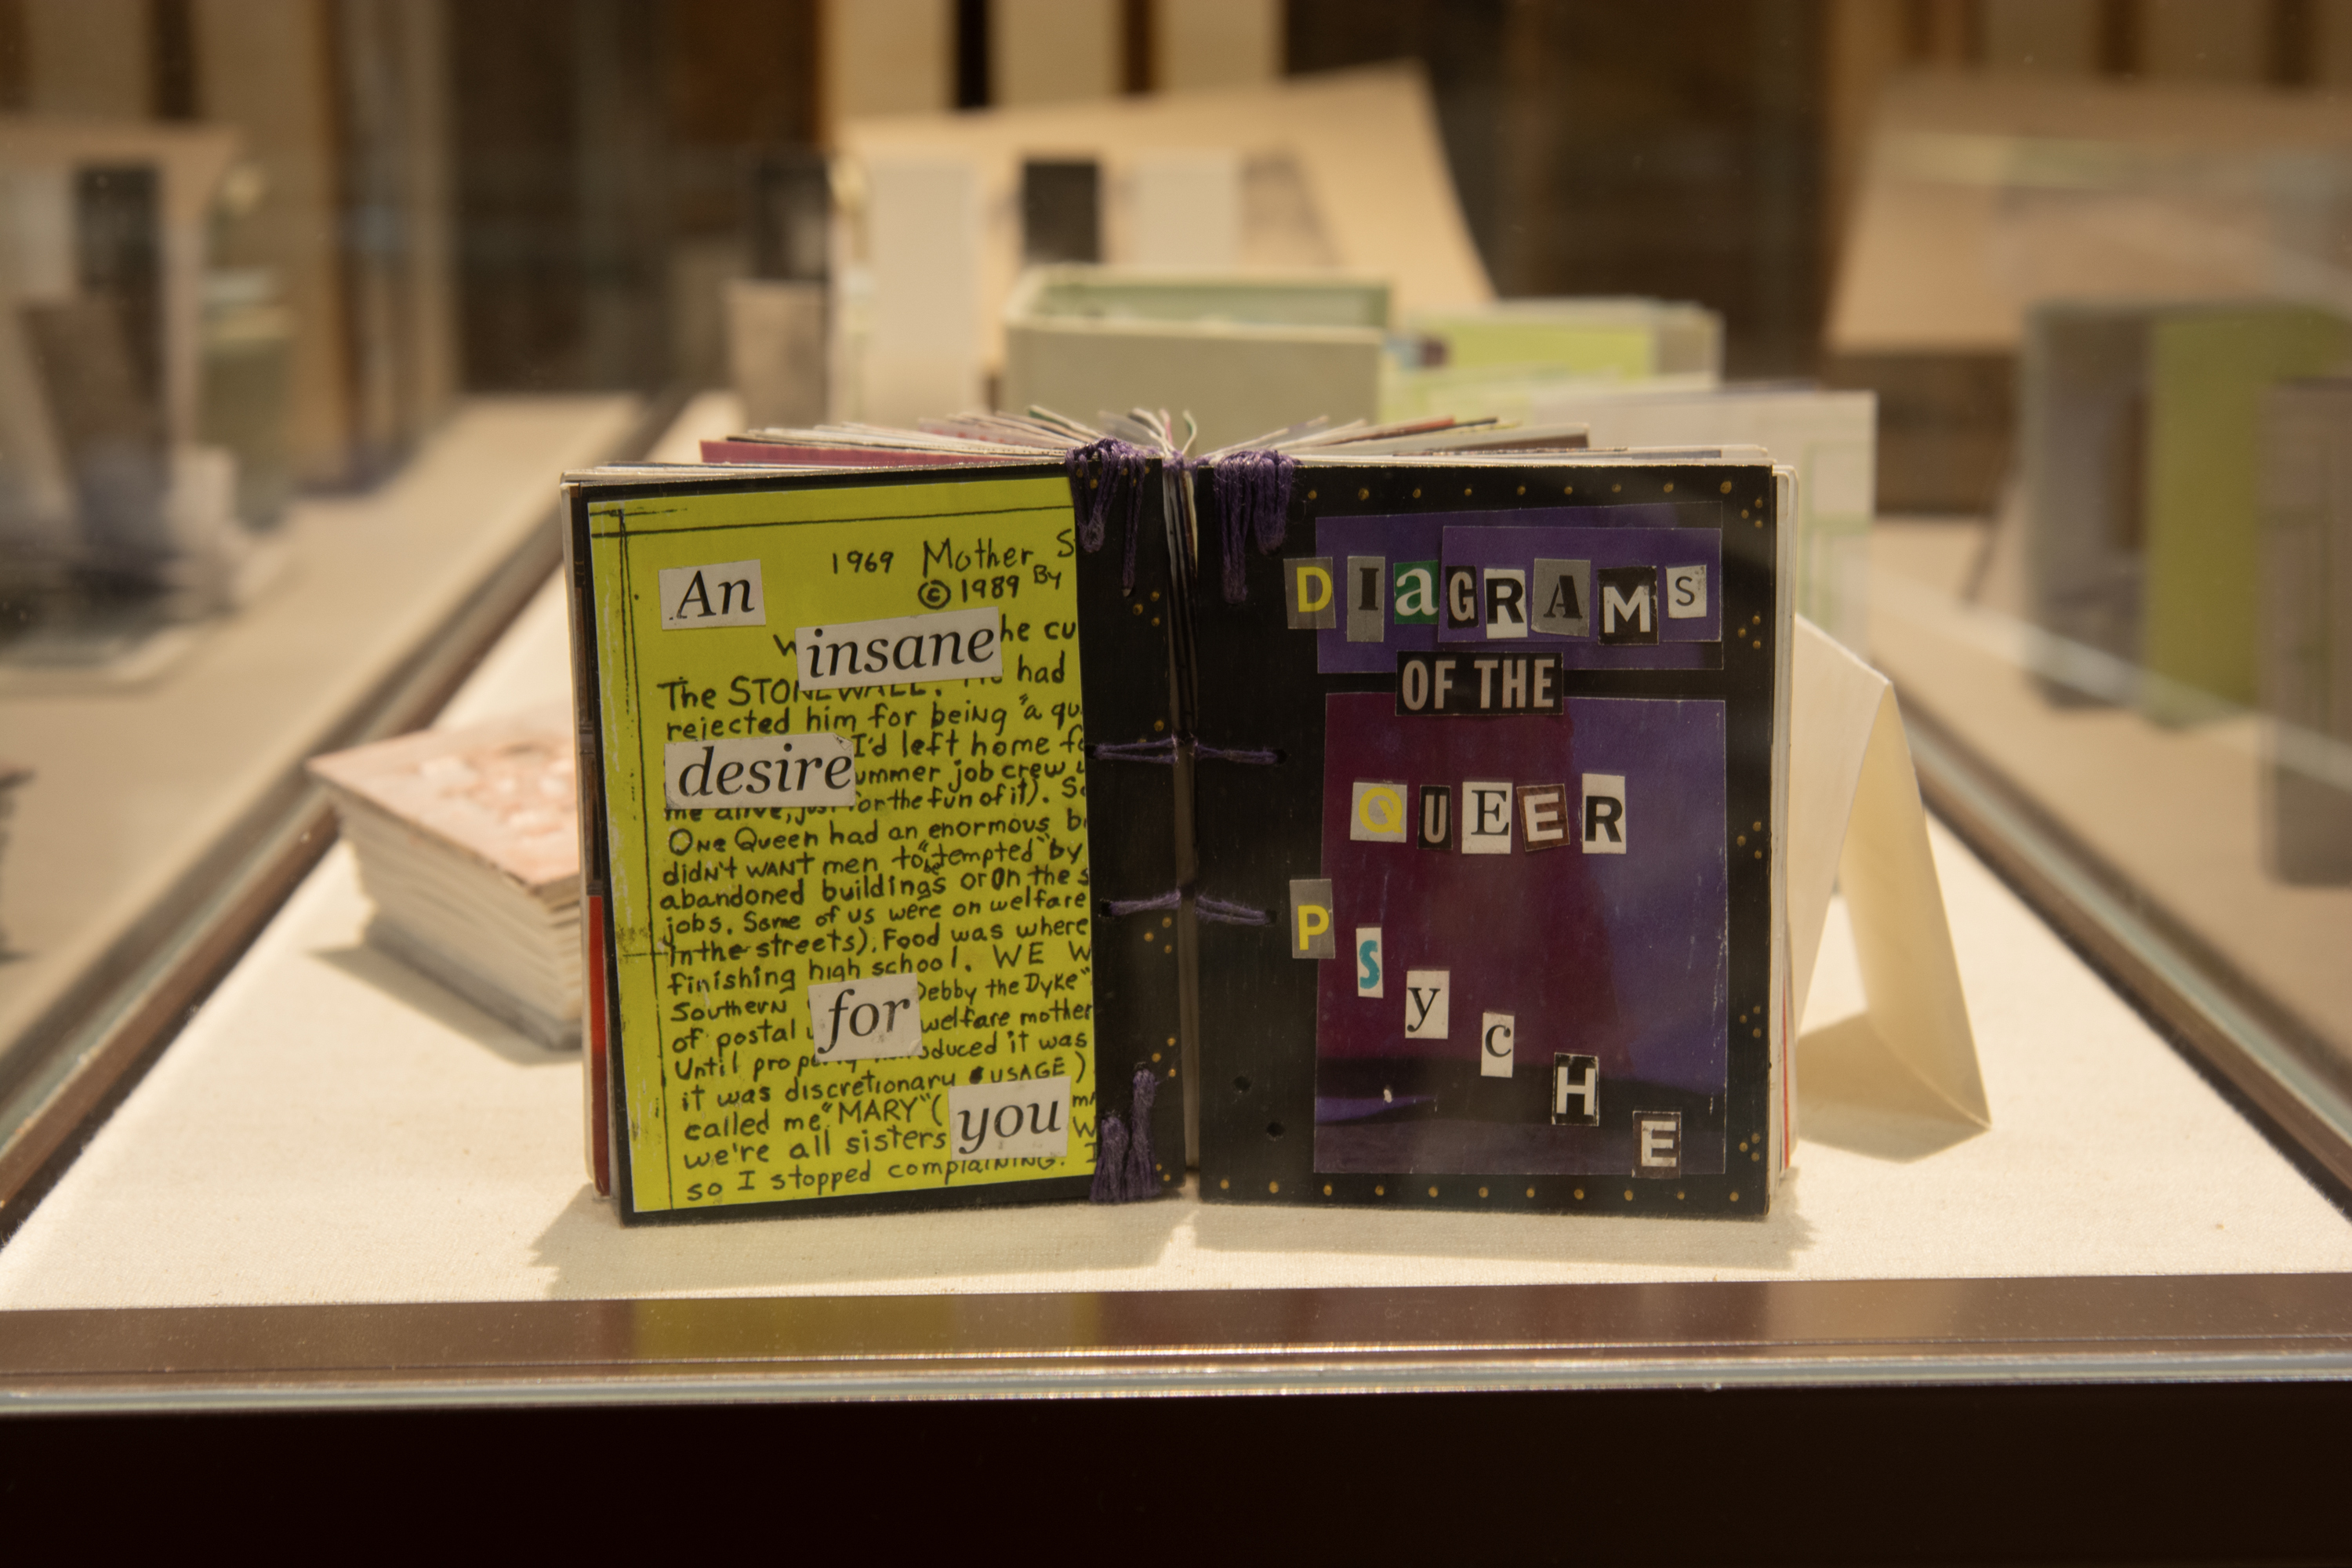 An
1969 Mother
© 1989 By
insane he cu
The STONEWALL. He had
rejected him for being "a qu
desire I'd left home fo
ummer job crew
me alive, just for the fun of it). So
One Queen had an enormous b
didn't WANT men to be "tempted" by
abandoned buildings or on the s
jobs. Some of us were on welfare
in the streets). Food was where
finishing high school. WE W
Southern for Debby the Dyke"
of postal welfare mother
Until properly introduced it was
it was discretionary USAGE)
called me "MARY" (
we're all sisters you W
so I stopped complaining. I
DIaGRAMS
OF THE
QUEER
PSycHE